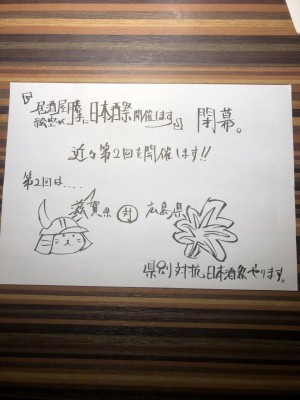 『居酒屋
絵空が 勝手に日本酒祭開催します』 閉幕。
近々第2回を開催します!!
第2回は....
滋賀県 対 広島県
県別対抗日本酒祭やります。